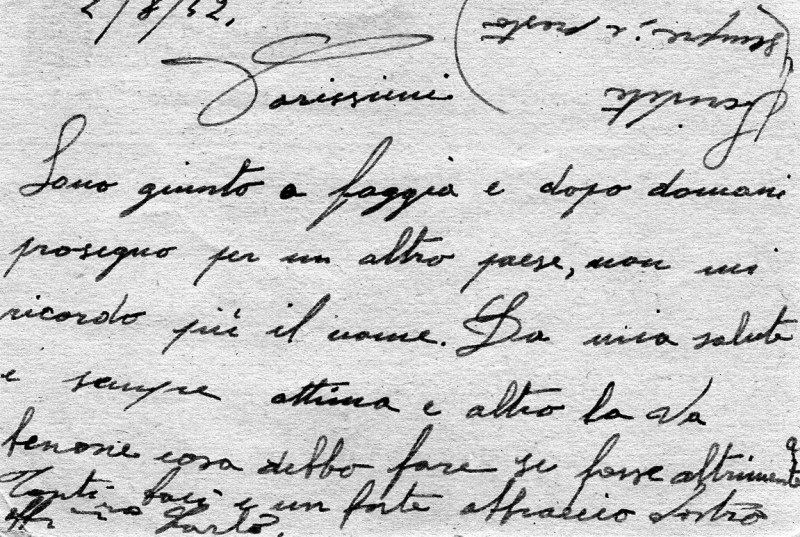 2/8/52.
Carissimi
Sono giunto a Foggia e dopo domani
proseguo per un altro paese, non mi
ricordo più il nome. La mia salute
e sempre ottima e altro la va
benone cosa debbo fare se fosse altrimenti
Tanti baci e un forte abbraccio Vostro
Carlo.
sempre in posto